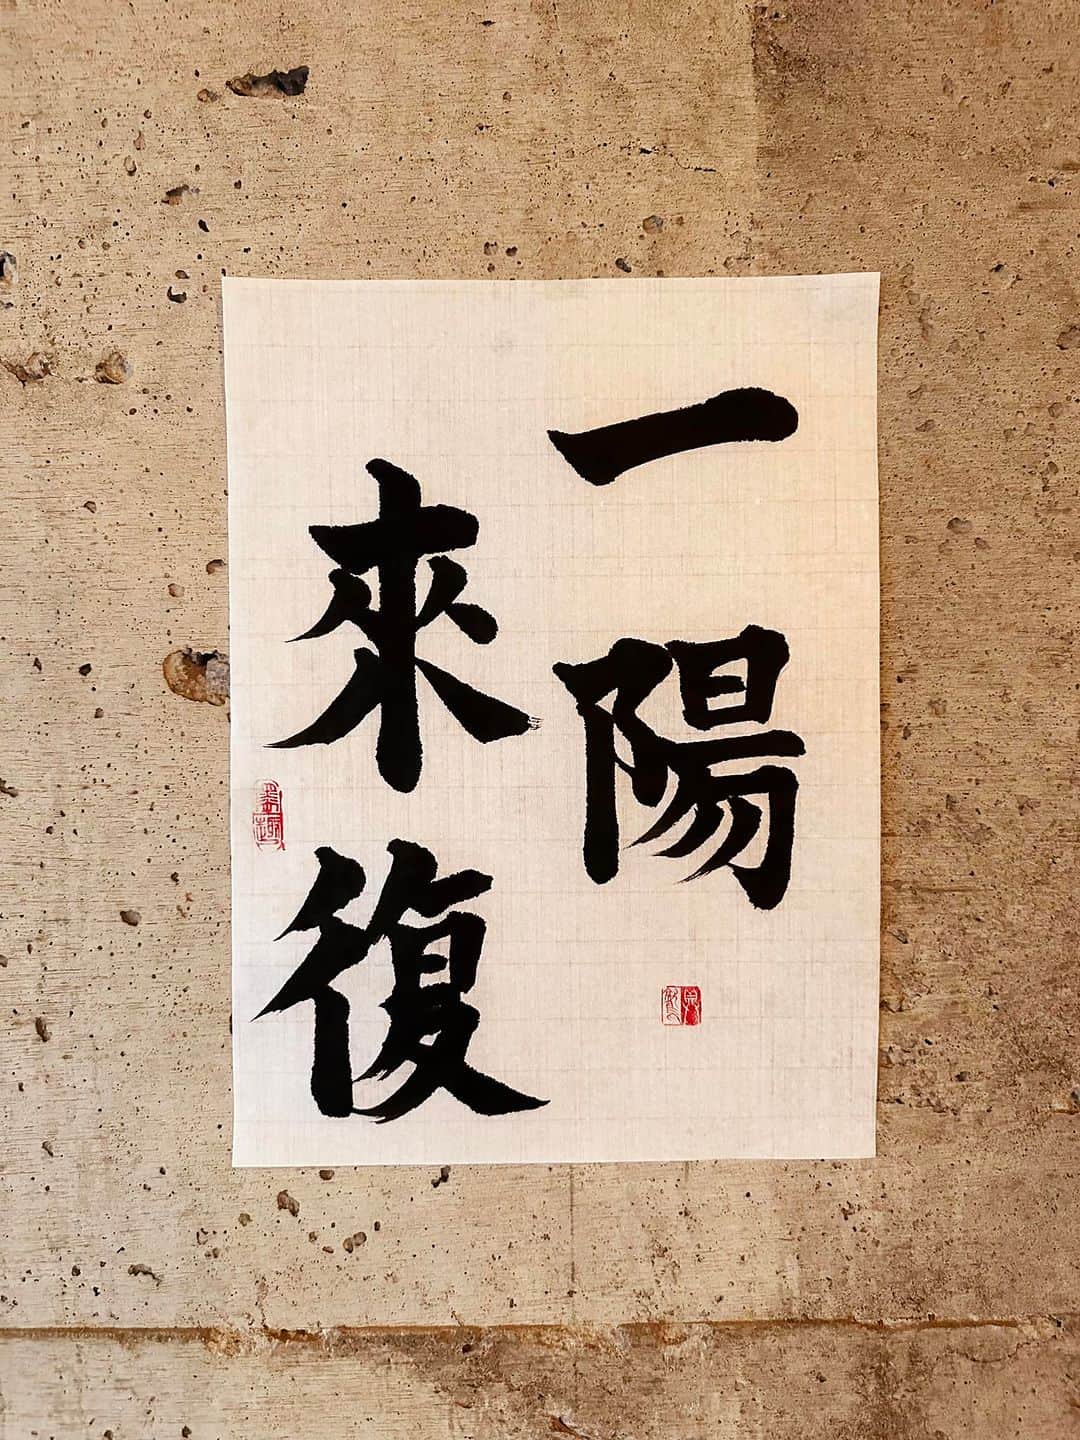 一陽
來復